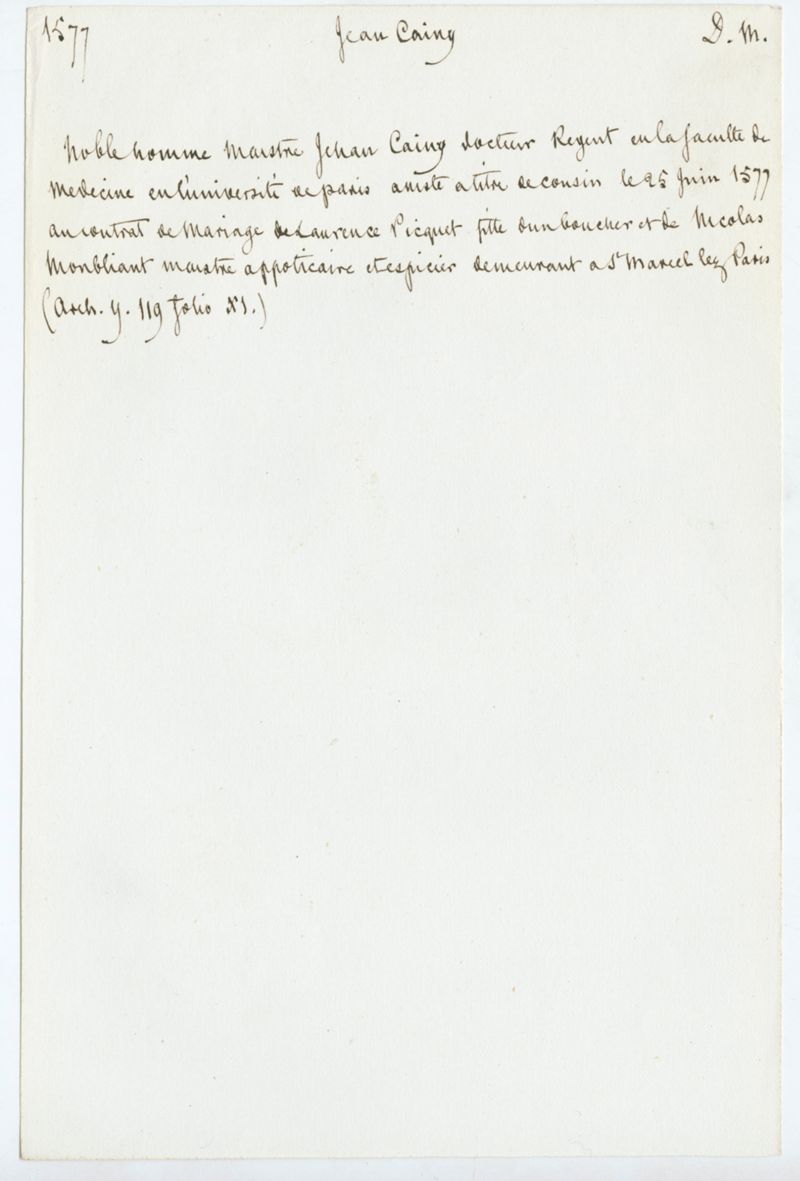 1577 Jean Cainy D. M.
Noble homme Maistre Jehan Cainy docteur Regent en la faculte de
Medecine en l'université de paris assiste a titre de cousin le 25 Juin 1577
au contrat de Mariage de Laurence Picquet fille d'un boucher et de Nicolas
Monbliant maistre appoticaire et espicier demeurant a St Marcel lez Paris
(Arch. Y. 119 folio XI.)